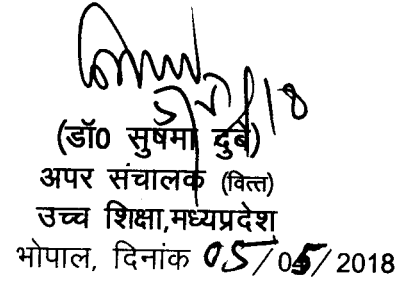 (डॉ0 सुषमा दुबे)
अपर संचालक (वित्त)
उच्च शिक्षा,मध्यप्रदेश
भोपाल, दिनांक 05/05/2018